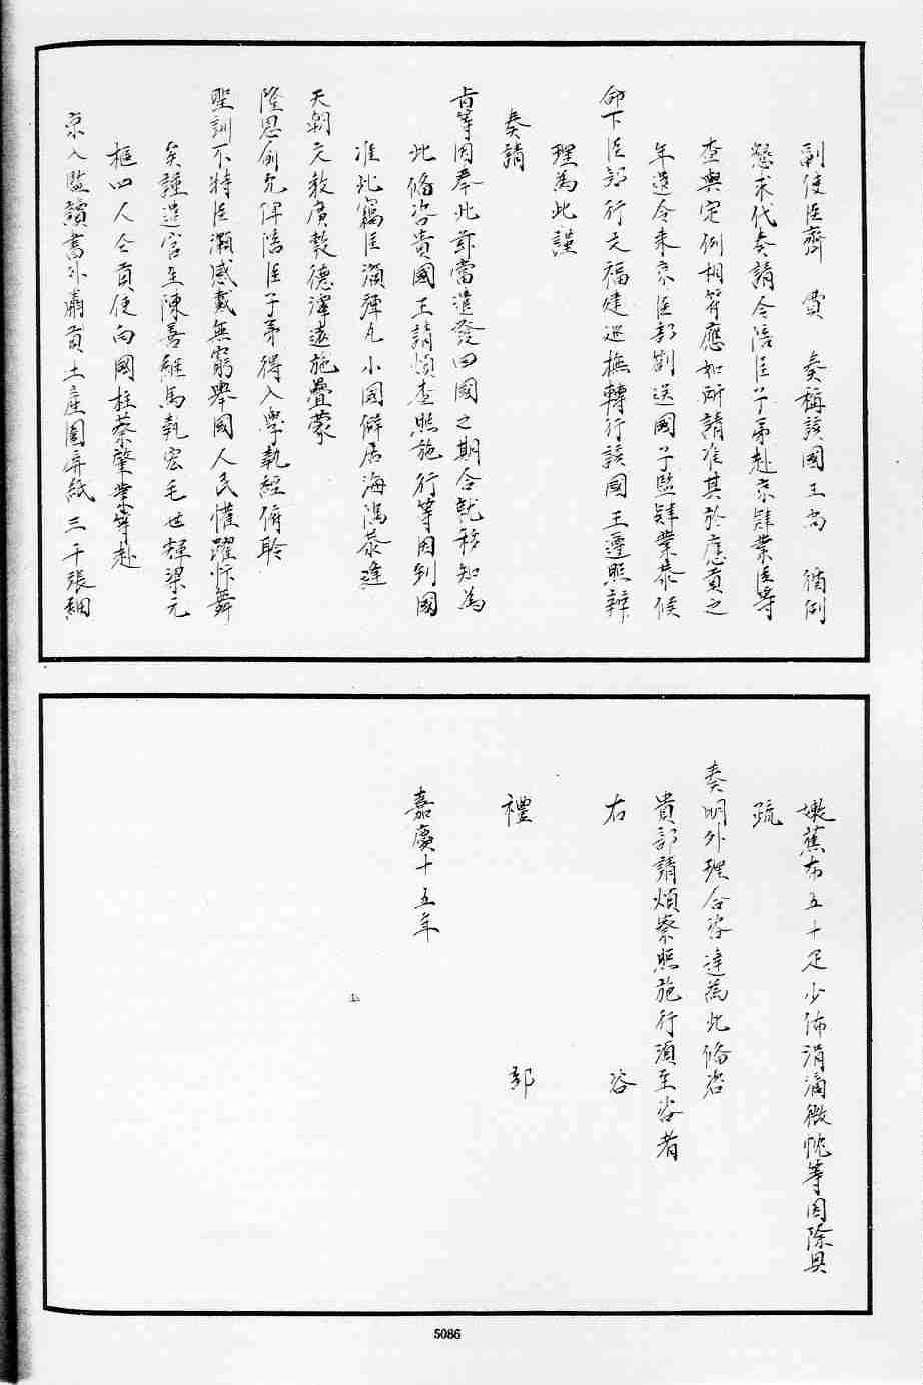 副使臣齊 費 奏稱該國王尚 循例
懇求代奏請令陪臣子弟赴京肄業臣等
查與定例相符應如所請准其於應貢之
年遣令來京臣部劄送國子監肄業恭候
命下臣部行文福建巡撫轉行該國王遵照辦
理為此謹
奏請
旨等因奉此茲當遣發回國之期合就移知為
此備咨貴國王請煩查照施行等因到國
准此竊臣灝彈丸小國僻居海隅恭逢
天朝文教廣敷德澤遠施疊蒙
隆恩俞允俾陪臣子弟得入學執經俯聆
聖訓不特臣灝感戴無窮舉國人民懽躍忭舞
矣謹遣官生陳善繼馬執宏毛世輝梁元
樞四人仝貢使向國柱蔡肇業等赴
京入監讀書外肅貢土產圍屏紙三千張細
嫩蕉布五十疋少佈涓滴微忱等因除具
疏
奏明外理合咨達為此備咨
貴部請煩察照施行須至咨者
右 咨
禮 部
嘉慶十五年
5086